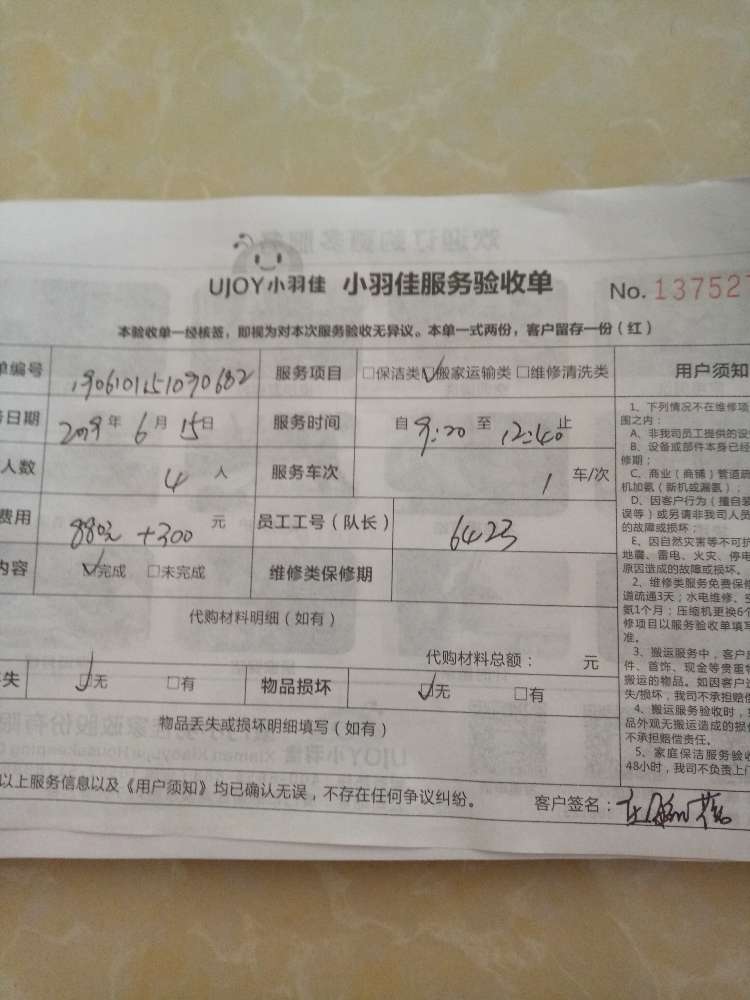 UJOY小羽佳 小羽佳服务验收单 No. 13752
本验收单一经核签，即视为对本次服务验收无异议。本单一式两份，客户留存一份（红）
单编号 190610151090682 服务项目 □保洁类 ☑搬家运输类 □维修清洗类
日期 2019年6月15日 服务时间 自9:20至12:40止
人数 4人 服务车次 1车/次
费用 880元+300元 员工工号（队长） 6423
内容 ☑完成 □未完成 维修类保修期
代购材料明细（如有）
代购材料总额： 元
失 ☑无 □有 物品损坏 ☑无 □有
物品丢失或损坏明细填写（如有）
以上服务信息以及《用户须知》均已确认无误，不存在任何争议纠纷。
客户签名：
用户须知
1、下列情况不在维修项
围之内：
A、非我司员工提供的设
B、设备或部件本身已经
修期；
C、商业（商铺）管道疏
机加氨（新机或漏氨）；
D、因客户行为（擅自装
误等）或另请非我司人员
的故障或损坏；
E、因自然灾害等不可护
地震、雷电、火灾、停电
原因造成的故障或损坏。
2、维修类服务免费保修
道疏通3天；水电维修、空
氨1个月；压缩机更换6个
修项目以服务验收单填写
准。
3、搬运服务中，客户
件、首饰、现金等贵重物
搬运的物品。如因客户
失/损坏，我司不承担赔偿
4、搬运服务验收时，
品外观无搬运造成的损
不承担赔偿责任。
5、家庭保洁服务验收
48小时，我司不负责上门